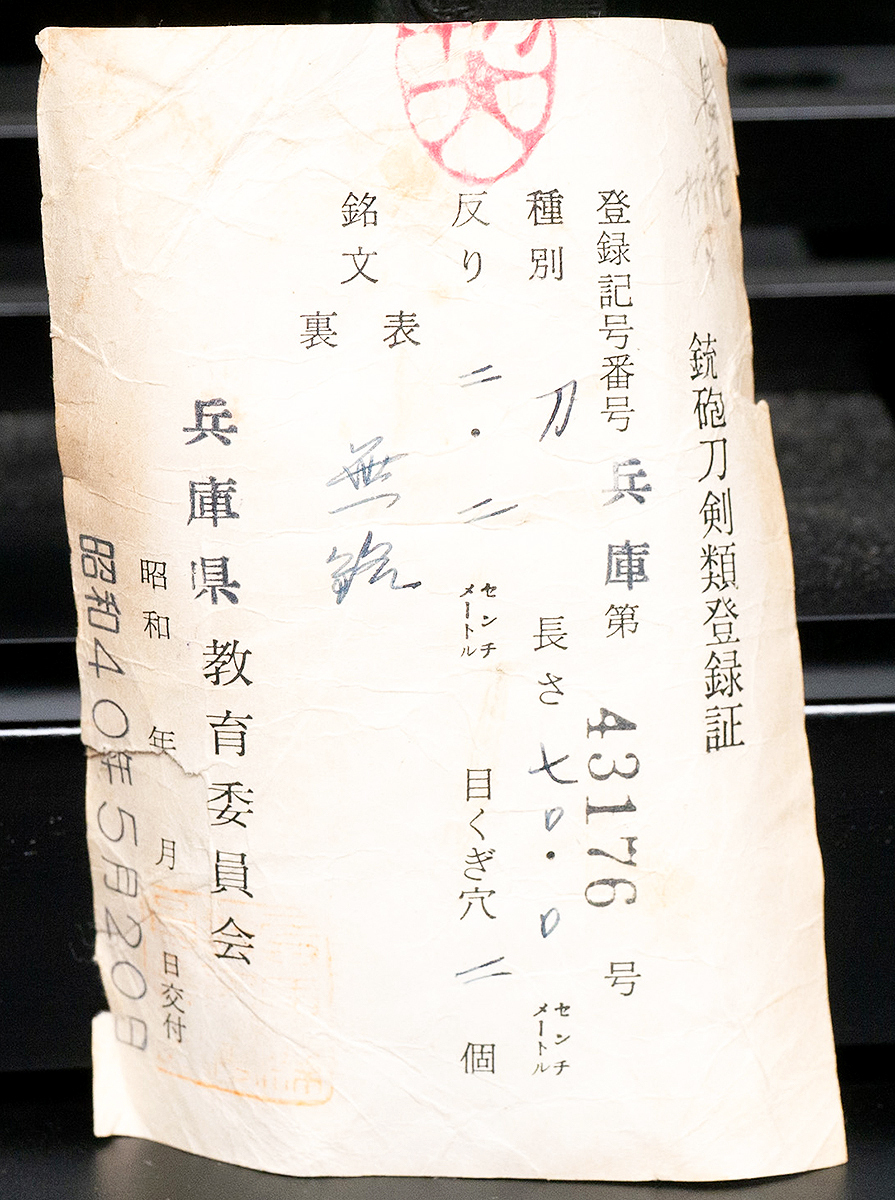 銃砲刀剣類登録証
登録記号番号 兵庫 第 43176 号
種別 刀 長さ 七〇・〇 センチメートル
反り 二・二 センチメートル 目くぎ穴 二 個
銘文 表
裏
無銘
兵庫県教育委員会
昭和 年 月 日交付
昭和40年5月20日